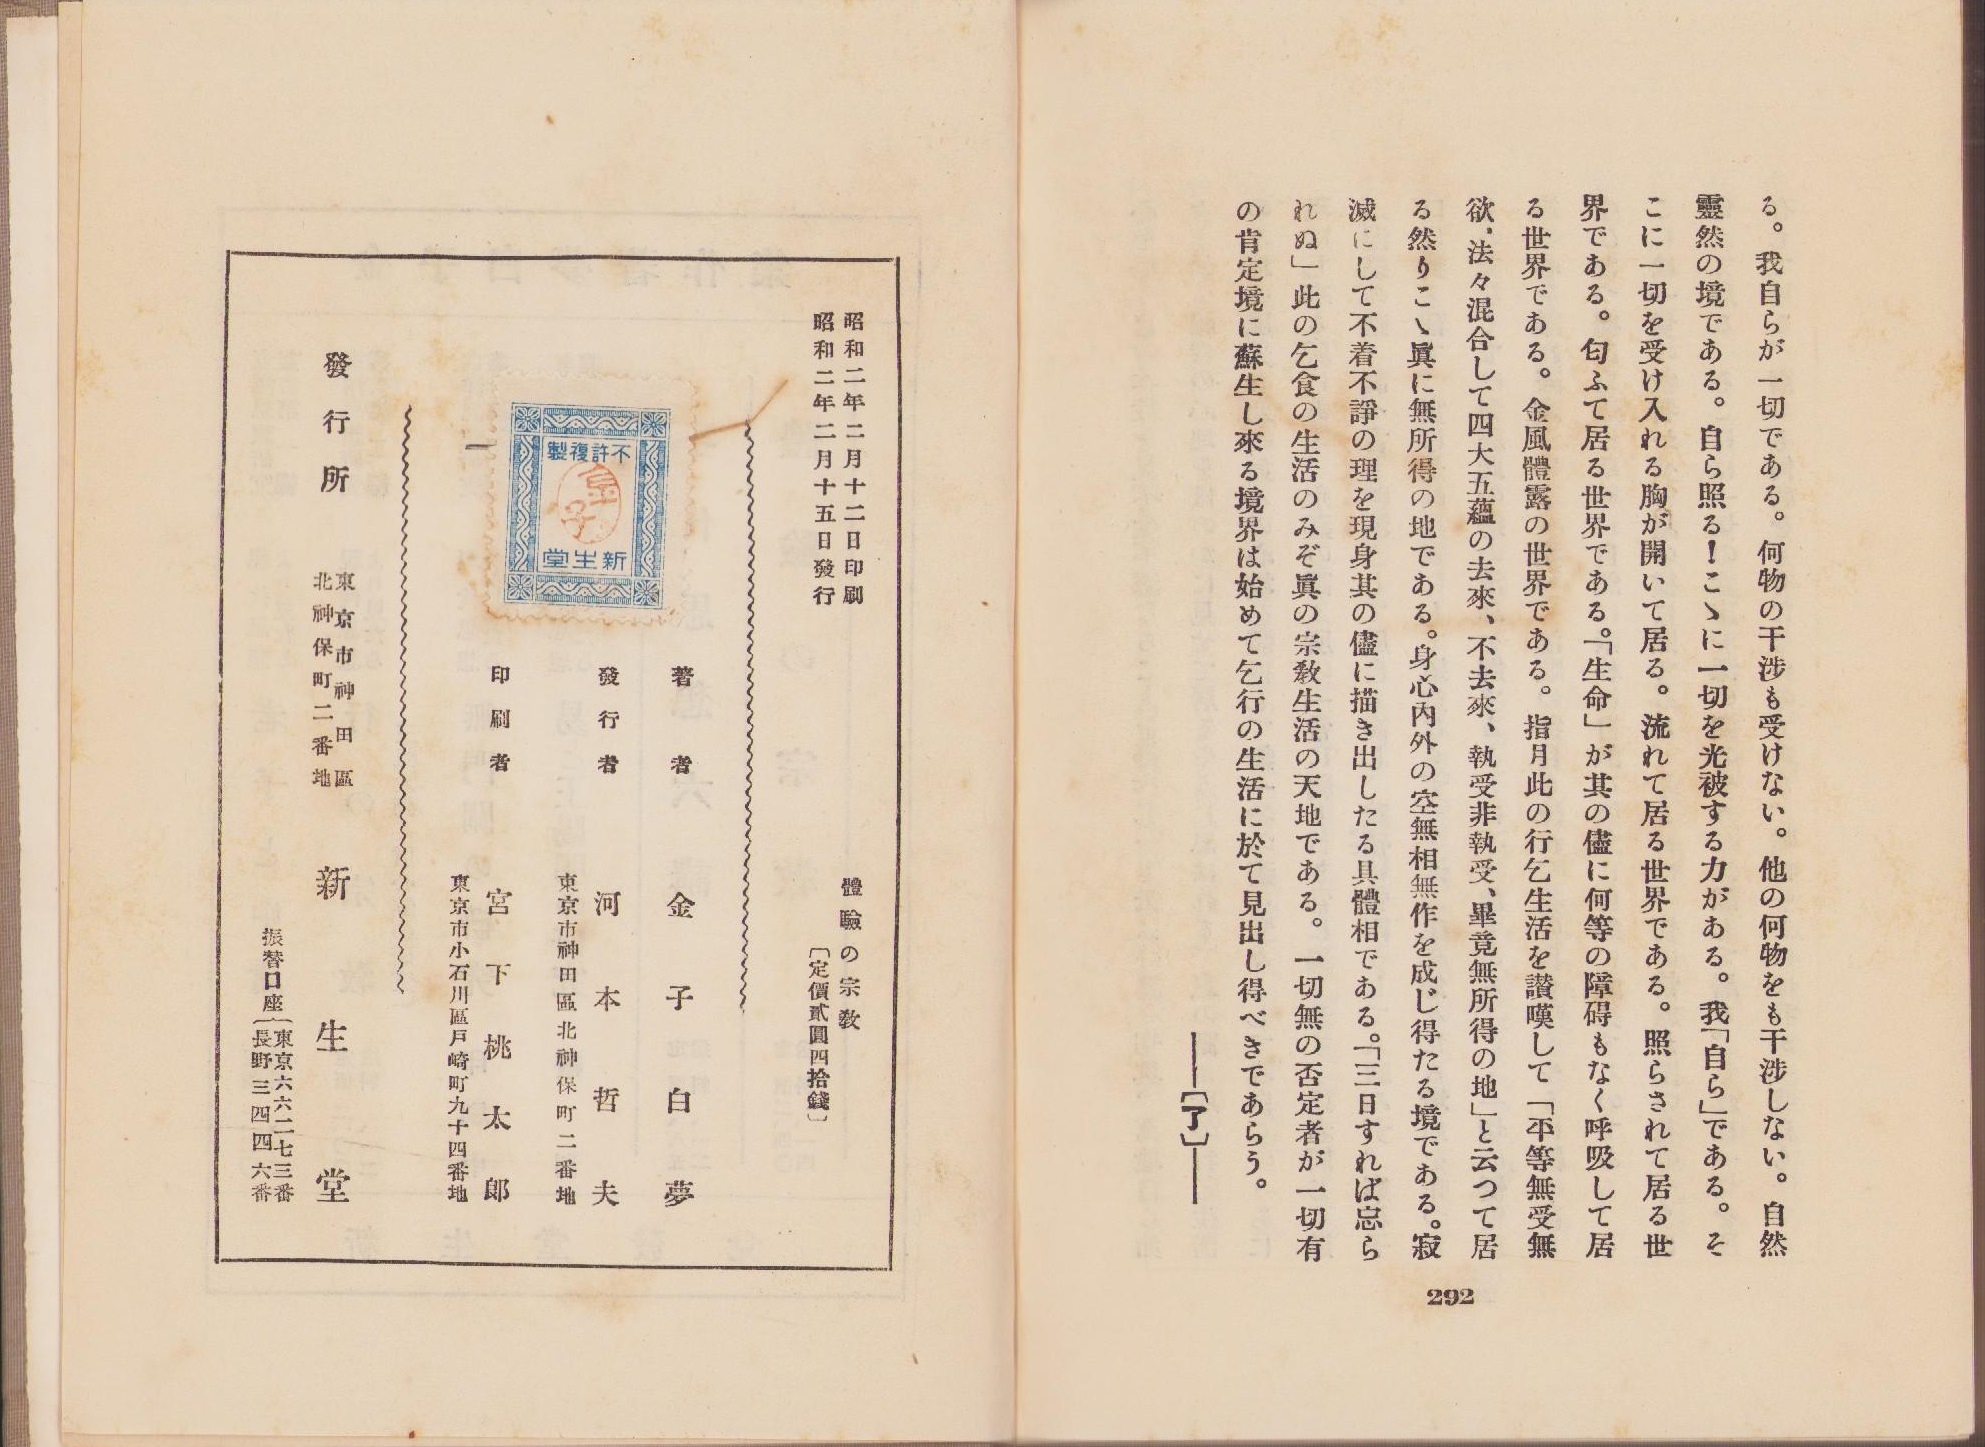 る。我自らが一切である。何物の干渉も受けない。他の何物をも干渉しない。自然
靈然の境である。自ら照る！こゝに一切を光被する力がある。我「自ら」である。そ
こに一切を受け入れる胸が開いて居る。流れて居る世界である。照らされて居る世
界である。匂ふて居る世界である。「生命」が其の儘に何等の障碍もなく呼吸して居
る世界である。金風體露の世界である。指月此の行乞生活を讃嘆して「平等無受無
欲、法々混合して四大五蘊の去來、不去來、執受非執受、畢竟無所得の地」と云つて居
る然りこゝ眞に無所得の地である。身心內外の空無相無作を成じ得たる境である。寂
滅にして不着不諍の理を現身其の儘に描き出したる具體相である。「三日すれば忘ら
れぬ」此の乞食の生活のみぞ眞の宗敎生活の天地である。一切無の否定者が一切有
の肯定境に蘇生し來る境界は始めて乞行の生活に於て見出し得べきであらう。
――〔了〕――
292
昭和二年二月十二日印刷
昭和二年二月十五日發行
體驗の宗敎
〔定價貳圓四拾錢〕
不許複製
金子
新生堂
著者 金子白夢
發行者 河本哲夫
東京市神田區北神保町二番地
印刷者 宮下桃太郎
東京市小石川區戸崎町九十四番地
發行所
東京市神田區
北神保町二番地
新生堂
振替口座
東京六六二七三番
長野三四四六番